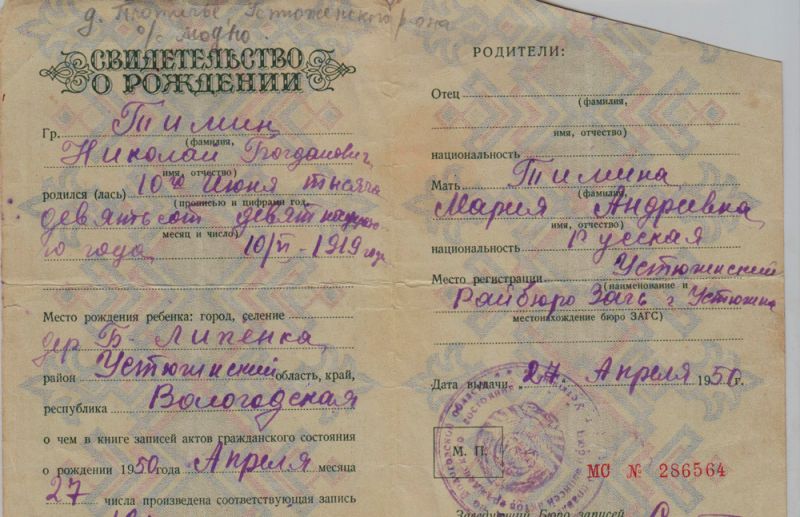 д. Плотичье Устюженского р-она
о/с Модно.
СВИДЕТЕЛЬСТВО
О РОЖДЕНИИ
Гр. Тимин
(фамилия,
Николай Богданович
имя, отчество)
родился (лась) 10го Июня тысяча
(прописью и цифрами год,
девятьсот девятнадцато
го года 10/VI-1919 года
месяц и число)
Место рождения ребенка: город, селение
дер Б-Липенка
район Устюжинский область, край,
республика Вологодская
о чем в книге записей актов гражданского состояния
о рождении 1950 года Апреля месяца
27 числа произведена соответствующая запись
РОДИТЕЛИ:
Отец
(фамилия,
имя, отчество)
национальность
Мать Тимина
(фамилия,
Мария Андреевна
имя, отчество)
национальность Русская
Место регистрации Устюжинский
(наименование и
Райбюро Загс г Устюжна
местонахождение бюро ЗАГС)
Дата выдачи „27 Апреля 1950 г.
М. П.
МС № 286564
Заведующий Бюро записей